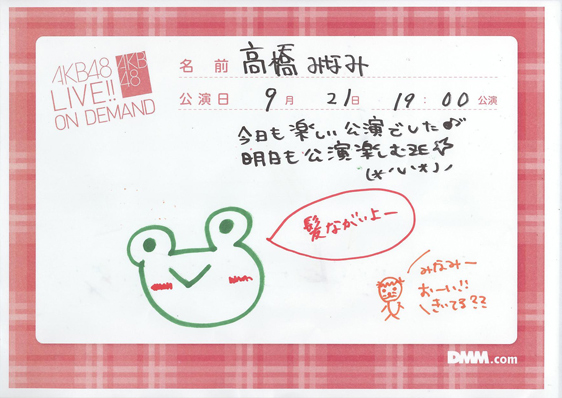 AKB48
LIVE!!
ON DEMAND
AKB
48
名 前 高橋 みなみ
公演日 9月 21日 19:00 公演
今日も楽しい公演でした
明日も公演楽しむZE☆
髪ながいよー
みなみー
おーい!!
きいてる??
DMM.com